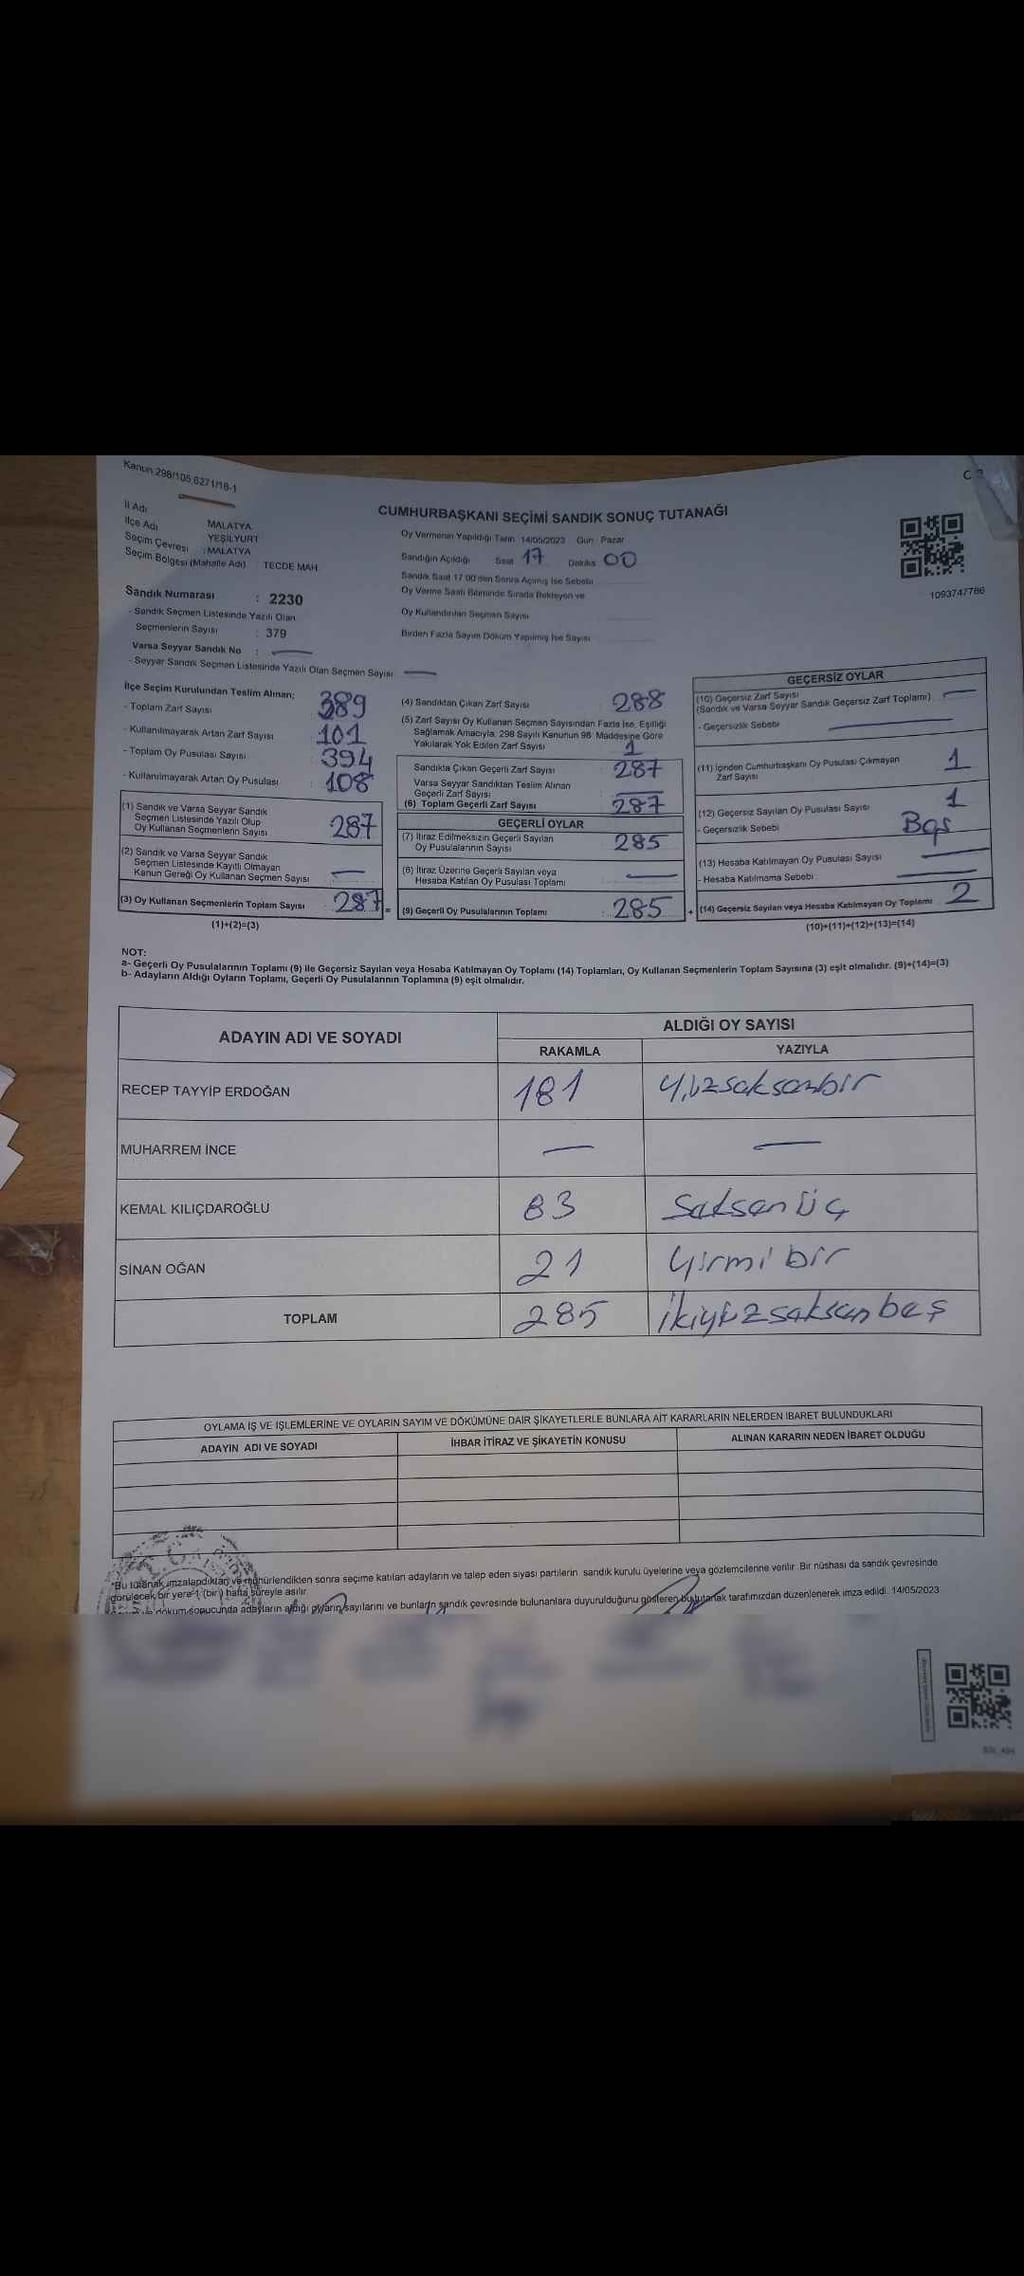 Kanun 298/105,6271/18-1
CUMHURBAŞKANI SEÇİMİ SANDIK SONUÇ TUTANAĞI
İl Adı : MALATYA
İlçe Adı : YEŞİLYURT
Seçim Çevresi : MALATYA
Seçim Bölgesi (Mahalle Adı) : TECDE MAH
Sandık Numarası : 2230
- Sandık Seçmen Listesinde Yazılı Olan
Seçmenlerin Sayısı : 379
Varsa Seyyar Sandık No :
- Seyyar Sandık Seçmen Listesinde Yazılı Olan Seçmen Sayısı
Oy Vermenin Yapıldığı Tarih 14/05/2023 Gün : Pazar
Sandığın Açıldığı Saat 17 Dakika 00
Sandık Saat 17:00'den Sonra Açılmış İse Sebebi
Oy Verme Saati Bitiminde Sırada Bekleyen ve
Oy Kullandırılan Seçmen Sayısı
Birden Fazla Sayım Döküm Yapılmış İse Sayısı
1093747786
İlçe Seçim Kurulundan Teslim Alınan;
- Toplam Zarf Sayısı : 389
- Kullanılmayarak Artan Zarf Sayısı : 101
- Toplam Oy Pusulası Sayısı : 394
- Kullanılmayarak Artan Oy Pusulası : 108
(1) Sandık ve Varsa Seyyar Sandık
Seçmen Listesinde Yazılı Olup
Oy Kullanan Seçmenlerin Sayısı : 287
(2) Sandık ve Varsa Seyyar Sandık
Seçmen Listesinde Kayıtlı Olmayan
Kanun Gereği Oy Kullanan Seçmen Sayısı
(3) Oy Kullanan Seçmenlerin Toplam Sayısı : 287 =
(1)+(2)=(3)
(4) Sandıktan Çıkan Zarf Sayısı : 288
(5) Zarf Sayısı Oy Kullanan Seçmen Sayısından Fazla İse, Eşitliği
Sağlamak Amacıyla, 298 Sayılı Kanunun 98. Maddesine Göre
Yakılarak Yok Edilen Zarf Sayısı 1
Sandıkta Çıkan Geçerli Zarf Sayısı : 287
Varsa Seyyar Sandıktan Teslim Alınan
Geçerli Zarf Sayısı
(6) Toplam Geçerli Zarf Sayısı : 287
GEÇERLİ OYLAR
(7) İtiraz Edilmeksizin Geçerli Sayılan
Oy Pusulalarının Sayısı : 285
(8) İtiraz Üzerine Geçerli Sayılan veya
Hesaba Katılan Oy Pusulası Toplamı
(9) Geçerli Oy Pusulalarının Toplamı : 285 +
GEÇERSİZ OYLAR
(10) Geçersiz Zarf Sayısı
(Sandık ve Varsa Seyyar Sandık Geçersiz Zarf Toplamı)
- Geçersizlik Sebebi
(11) İçinden Cumhurbaşkanı Oy Pusulası Çıkmayan
Zarf Sayısı 1
(12) Geçersiz Sayılan Oy Pusulası Sayısı 1
- Geçersizlik Sebebi Boş
(13) Hesaba Katılmayan Oy Pusulası Sayısı
- Hesaba Katılmama Sebebi
(14) Geçersiz Sayılan veya Hesaba Katılmayan Oy Toplamı 2
(10)+(11)+(12)+(13)=(14)
NOT:
a- Geçerli Oy Pusulalarının Toplamı (9) ile Geçersiz Sayılan veya Hesaba Katılmayan Oy Toplamı (14) Toplamları, Oy Kullanan Seçmenlerin Toplam Sayısına (3) eşit olmalıdır. (9)+(14)=(3)
b- Adayların Aldığı Oyların Toplamı, Geçerli Oy Pusulalarının Toplamına (9) eşit olmalıdır.
ADAYIN ADI VE SOYADI ALDIĞI OY SAYISI
RAKAMLA YAZIYLA
RECEP TAYYİP ERDOĞAN 181 Yüzseksenbir
MUHARREM İNCE — —
KEMAL KILIÇDAROĞLU 83 Seksen üç
SİNAN OĞAN 21 Yirmi bir
TOPLAM 285 İkiyüzseksenbeş
OYLAMA İŞ VE İŞLEMLERİNE VE OYLARIN SAYIM VE DÖKÜMÜNE DAİR ŞİKAYETLERLE BUNLARA AİT KARARLARIN NELERDEN İBARET BULUNDUKLARI
ADAYIN ADI VE SOYADI İHBAR İTİRAZ VE ŞİKAYETİN KONUSU ALINAN KARARIN NEDEN İBARET OLDUĞU
*Bu tutanak imzalandıktan ve mühürlendikten sonra seçime katılan adayların ve talep eden siyasi partilerin sandık kurulu üyelerine veya gözlemcilerine verilir. Bir nüshası da sandık çevresinde
görülecek bir yere 1 (bir) hafta süreyle asılır.
döküm sonucunda adayların aldığı oyların sayılarını ve bunların sandık çevresinde bulunanlara duyurulduğunu gösteren bu tutanak tarafımızdan düzenlenerek imza edildi. 14/05/2023